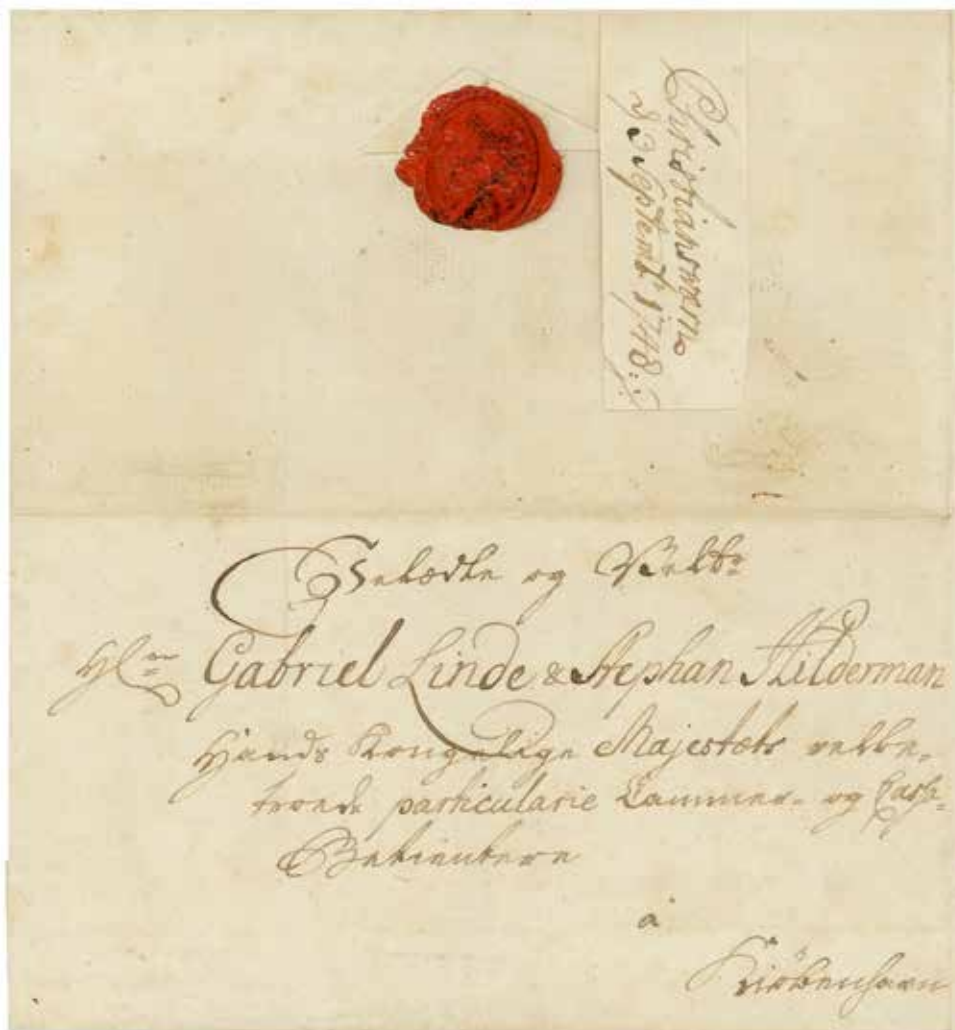 Christianswærn
d 3 Septemb 1748:
og Velb:
Hr Gabriel Linde & Stephan Hilderman
Hands Kongelige Majestæts velbe-
troede particularie Cammer- og Cass-
Betientere
a
Kiöbenhavn